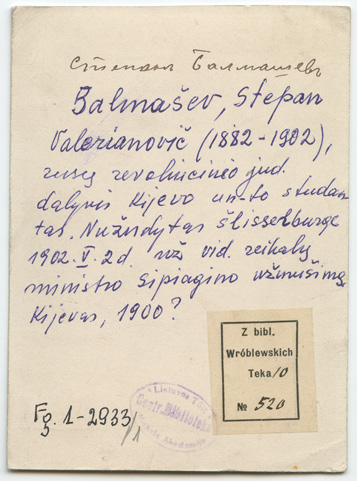 Степанъ Балмашевъ
Balmašev, Stepan
Valerianovič (1882-1902),
rusų revoliucinio jud.
dalyvis Kijevo un-to studen
tas. Nužudytas Šlisselburge
1902.V.2d. už vid. reikalų
ministro Sipiagino užmušimą
Kijevas, 1900?
Z bibl.
Wróblewskich
Teka/0
№ 520
Lietuvos TSR
Centr. Biblioteka
Mokslų Akademija
Fg. 1-2933/1